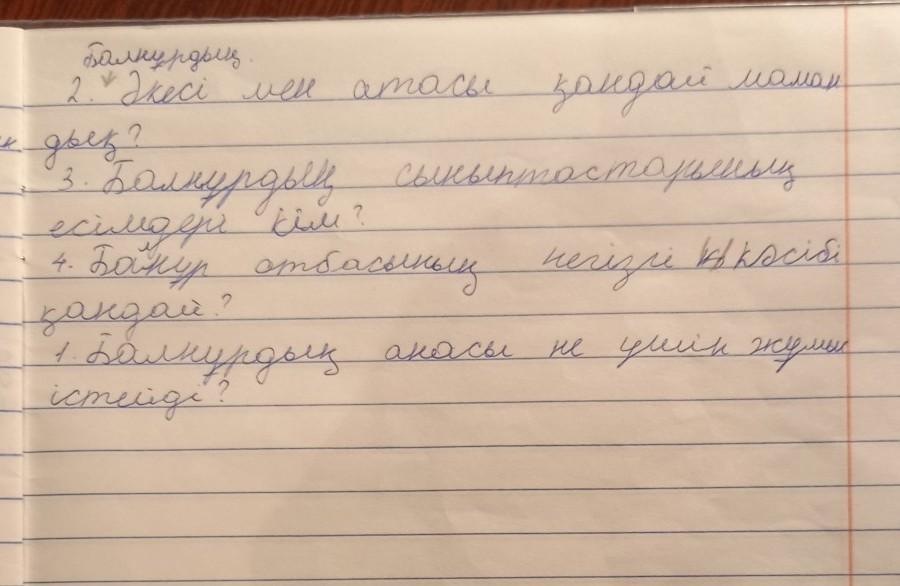 Балнұрдың.
2. Әкесі мен атасы қандай маман
дық?
3. Балнұрдың сыныптастарының
есімдері кім?
4. Балнұр отбасының негізгі кәсібі
қандай?
1. Балнұрдың анасы не үшін жұмыс
істейді?